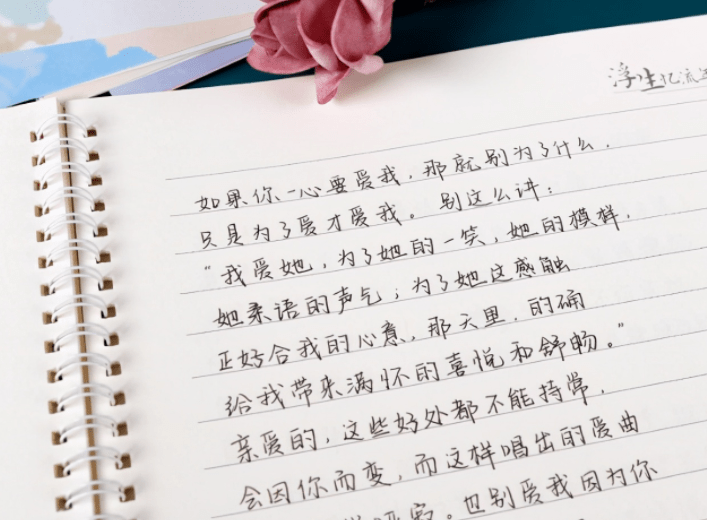 浮生忆流
如果你一心要爱我，那就别为了什么，
只是为了爱才爱我。别这么讲：
“我爱她，为了她的一笑，她的模样，
她柔语的声气；为了她这感触
正好合我的心意，那天里，的确
给我带来满怀的喜悦和舒畅。”
亲爱的，这些好处都不能持常，
会因你而变，而这样唱出的爱曲
。也别爱我因为你